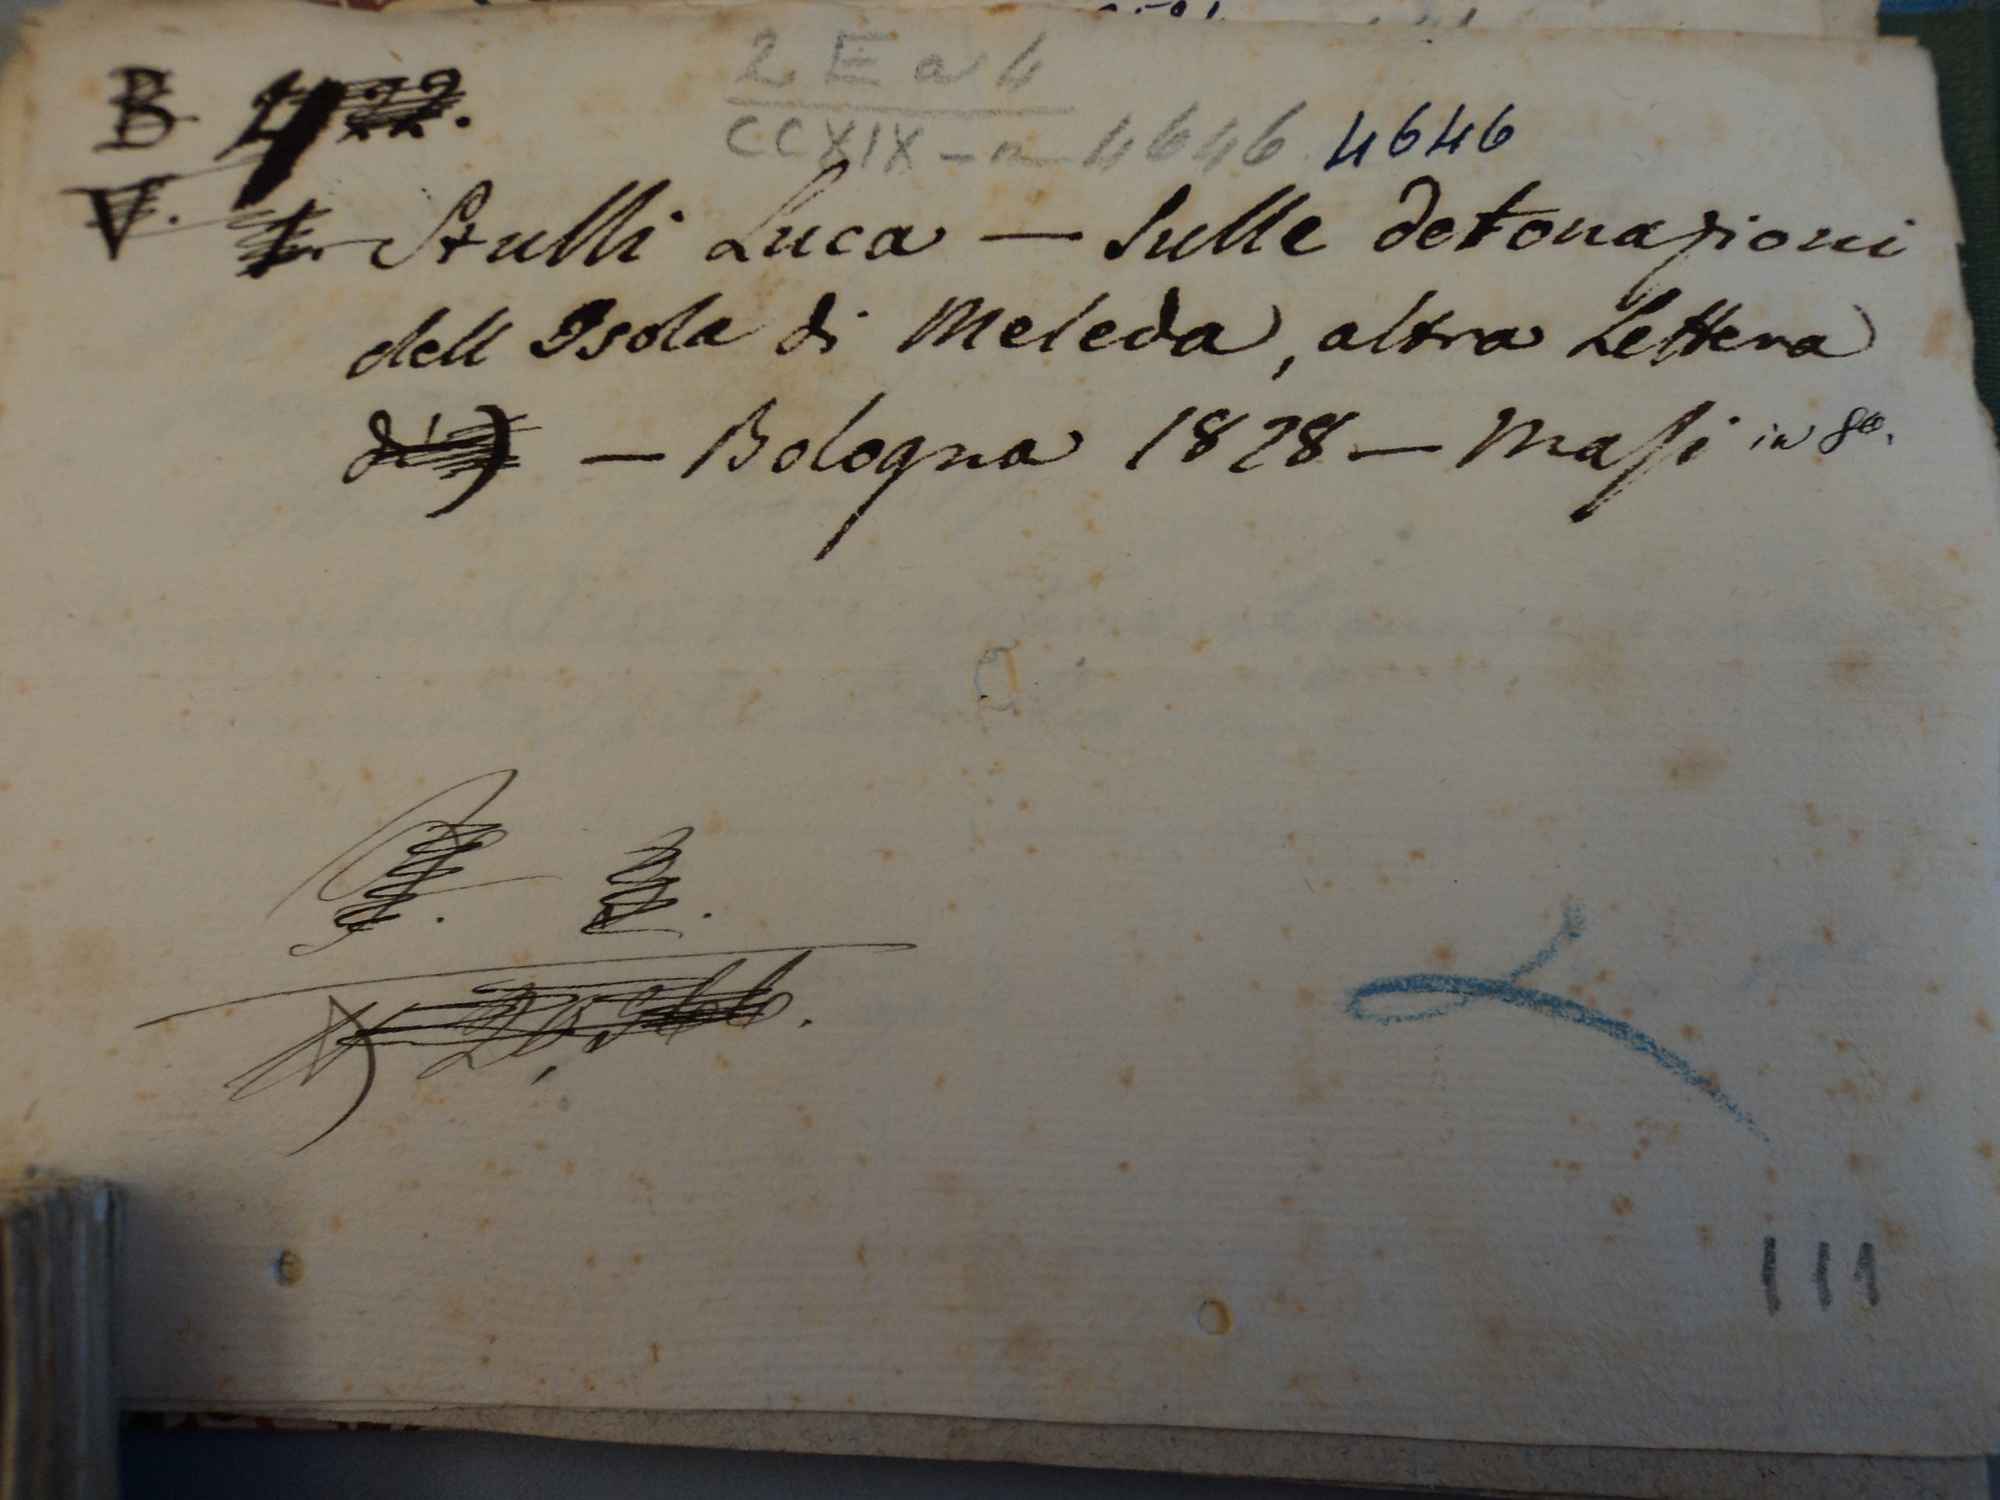 2 E a 4
CCXIX - n 4646 4646
B 4
V.
Stulli Luca — Sulle detonazioni
dell Isola di Meleda, altra Lettera
— Bologna 1828 — Masi in 8º.
111